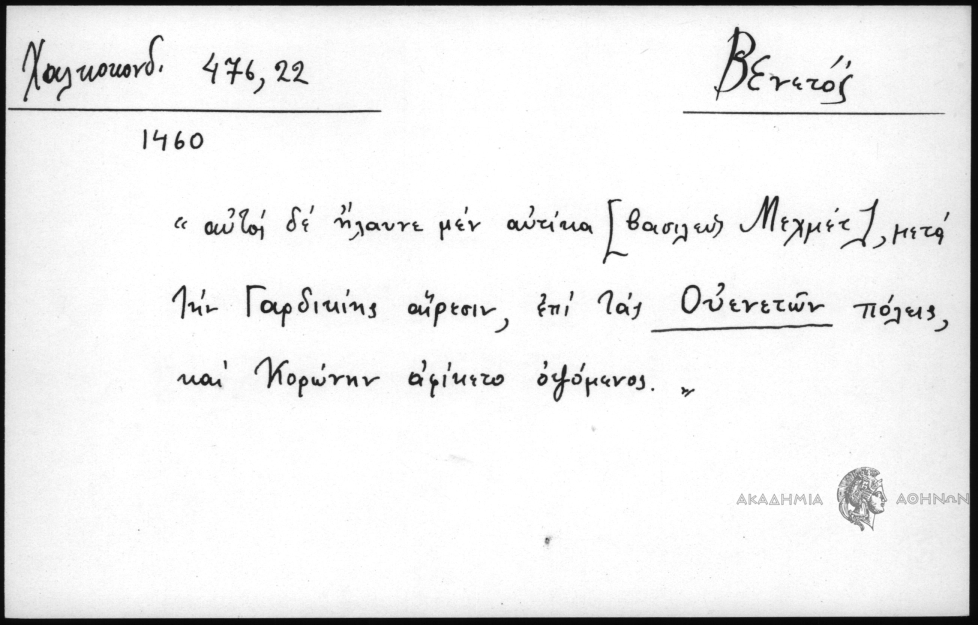 Χαλκοκονδ. 476,22
Βενετός
1460
"αὐτοί δέ ἤλαυνε μέν αὐτίκα [βασιλεύς Μεχμέτ], μετά
τήν Γαρδικίης αἵρεσιν, ἐπί τάς Οὐενετῶν πόλεις,
καί Κορώνην ἀφίκετο ὀψόμενος."
ΑΚΑΔΗΜΙΑ ΑΘΗΝΩΝ